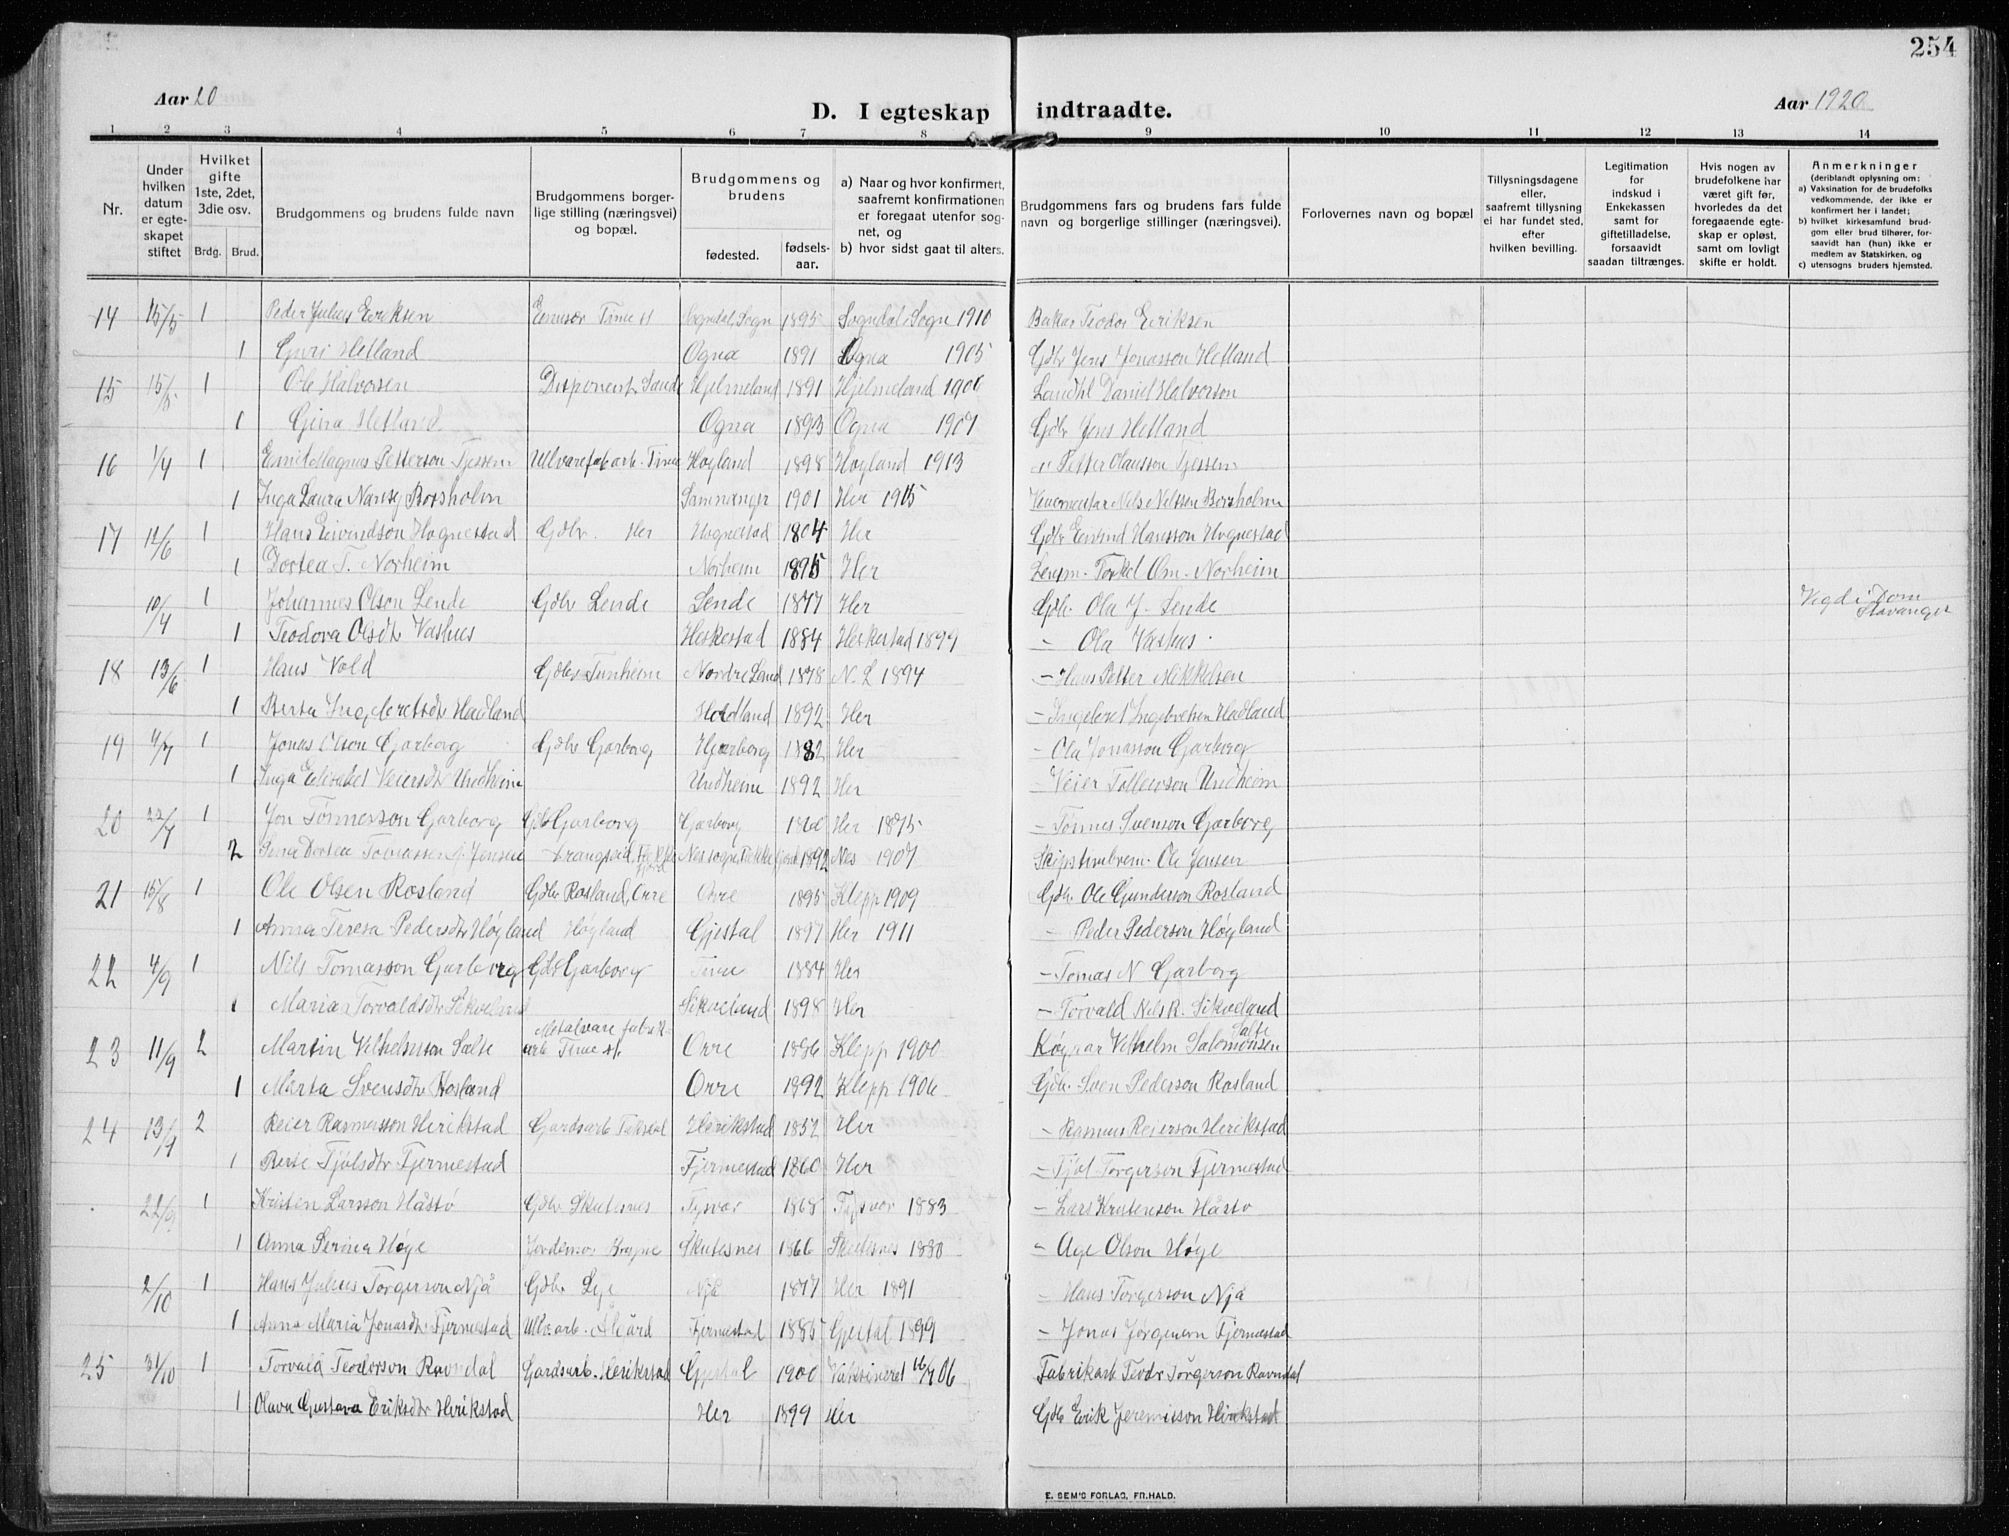 254
Aar 20
D. I egteskap indtraadte.
Aar 1920
1 2 3 4 5 6 7 8 9 10 11 12 13 14
Nr.
Under hvilken datum er egteskapet stiftet
Hvilket gifte 1ste, 2det, 3die osv.
Brdg. Brud.
Brudgommens og brudens fulde navn
Brudgommens borgerlige stilling (næringsvei) og bopæl.
Brudgommens og brudens
fødested. fødselsaar.
a) Naar og hvor konfirmert, saafremt konfirmationen er foregaat utenfor sognet, og
b) hvor sidst gaat til alters.
Brudgommens fars og brudens fars fulde navn og borgerlige stillinger (næringsvei).
Forlovernes navn og bopæl
Tillysningsdagene eller, saafremt tillysning ei har fundet sted, efter hvilken bevilling.
Legitimation for indskud i Enkekassen samt for giftetilladelse, forsaavidt saadan tiltrænges.
Hvis nogen av brudefolkene har været gift før, hvorledes da det foregaaende egteskap er opløst, samt om lovligt skifte er holdt.
Anmerkninger
(deriblandt oplysning om:
a) Vaksination for de brudefolks vedkommende, der ikke er konfirmert her i landet;
b) hvilket kirkesamfund brudgom eller brud tilhører, forsaavidt han (hun) ikke er medlem av Statskirken, og
c) utensogns bruders hjemsted.
14 15/5 1 Peder Julius Eriksen Time st Sogndal, Sogn 1895 Sogndal, Sogn 1910 Teodor Eriksen
1 Guri Hetland Ogna 1891 Ogna 1905 Gdbr Jens Jonasson Hetland
15 15/5 1 Ole Halvorsen Disponent, Sande Hjelmeland 1891 Hjelmeland 1906 Landhl Daniel Halvorson
1 Gina Hetland Ogna 1893 Ogna 1907 Gdbr Jens Hetland
16 1/4 1 Emil Magnus Petterson Tjessem Ulvarefab arb. Time Høyland 1898 Høyland 1913 " Petter Olausson Tjessem
1 Inga Laura Nansy Borsholm Samnanger 1901 Her 1915 Nils Nilssen Borsholm
17 12/6 1 Hans Eivindson Hognestad Gdbr. Her Hognestad 1894 Her Gdbr Eivind Hansson Hognestad
1 Dortea T. Norheim Norheim 1895 Her Lensm. Torkel Om. Norheim
10/4 1 Johannes Olson Lende Gdbr Lende Lende 1877 Her Gdb. Ola J. Lende Vigd i Dom Stavanger
1 Teodora Olsdtr Vashus Heskestad 1884 Heskestad 1899 – Ola Vashus
18 13/6 1 Hans Vold Gdbr Tunheim Nordre Land 1878 N. L 1894 – Hans Petter Mikkelsen
1 Berta Ing. Hadland Hadland 1892 Her – Ingebret Ingebretsen Hadland
19 4/7 1 Jonas Olson Garborg Gdbr Garborg Garborg 1882 Her – Ola Jonasson Garborg
1 Inga Elisabet Veiersdtr Undheim Undheim 1892 Her – Veier Tollevson Undheim
20 22/7 1 Jon Tønnesson Garborg Gdb Garborg Garborg 1860 Her 1875 – Tønnes Svenson Garborg
2 Dortea Tobiassen f. Jensen 1892 Nes 1907 Skipstimberm. Ole Jensen
21 15/8 1 Ole Olsen Rosland Gdbr Rosland, Orre Orre 1895 Klepp 1909 Gdbr Ole Gunderson Rosland
1 Anna Teresa Pedersdtr Høyland Høyland Gjestal 1897 Her 1911 – Peder Pederson Høyland
22 4/9 1 Nils Tomasson Garborg Gdbr Garborg Time 1884 Her – Tomas N Garborg
1 Maria Torvaldsdtr Sikveland Sikveland 1898 Her – Torvald Nils R. Sikveland
23 11/9 2 Martin Vilhelmson Salte Metalvare fabrik arb Time st. Orre 1886 Klepp 1900 Vilhelm Salomonsen Salte
1 Marta Svensdtr Rosland Orre 1892 Klepp 1906 Gdb. Sven Pederson Rosland
24 13/9 2 Reier Rasmusson Herikstad Gardsarb Herikstad 1852 Her – Rasmus Reierson Herikstad
1 Berte Tjølsdtr Fjermestad Fjermestad 1860 Her – Tjøl Torgerson Fjermestad
22/9 1 Kristen Larsson Håstø Gdbr Skutesnes Tysvær 1868 Tysvær 1883 – Lars Kristenson Håstø
1 Anna Serina Høge Jordemor Bryne Skutesnes 1866 Skutesnes 1880 – Age Olson Høge
2/10 1 Hans Julius Torgerson Njå Gdbr Lye Njå 1877 Her 1891 – Hans Torgerson Njå
1 Anna Maria Jonasdtr Fjermestad Ulvarb. Ålgård Fjermestad 1885 Gjestal 1899 – Jonas Jørgensen Fjermestad
25 31/10 1 Torvald Teodorson Ravndal Gardsarb. Herikstad Gjestal 1900 Vaksineret 16/7 06 Fabrikarb Teodr Torgerson Ravndal
1 Olava Gustava Eriksdtr Herikstad Her 1899 Her Gdb Erik Jeremisson Herikstad
E. SEM'S FORLAG, FR.HALD.